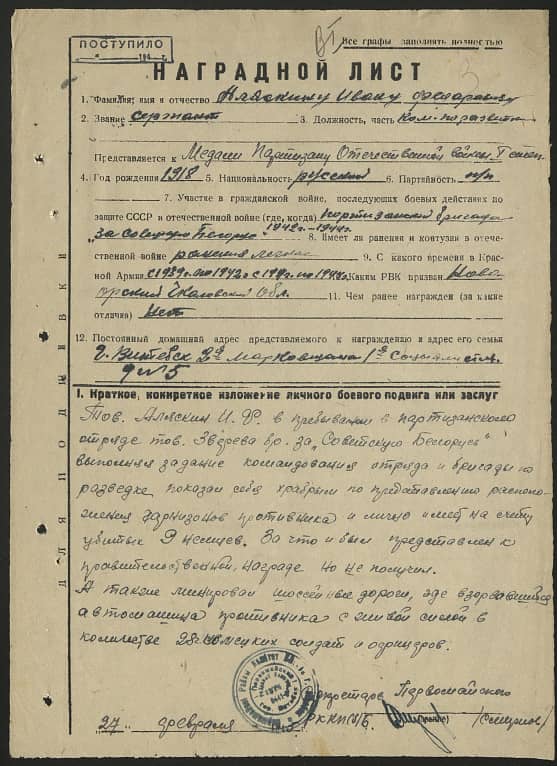 ПОСТУПИЛО
194 г.
Все графы заполнять полностью
НАГРАДНОЙ ЛИСТ
1. Фамилия, имя и отчество Аляскину Ивану
2. Звание сержант 3. Должность, часть Ком-р развед
Представляется к Медали Партизану Отечественной войны I степ.
4. Год рождения 1918 5. Национальность русский 6. Партийность
7. Участие в гражданской войне, последующих боевых действиях по
защите СССР и отечественной войне (где, когда) партизанской бригада
„за Советскую Белорус" 1942г.-1944г. 8. Имеет ли ранения и контузии в отече-
ственной войне ранения легкие 9. С какого времени в Крас-
ной Армии с 1939г. по 1942г. Каким РВК призван Ново
орский Чкаловский обл. 11. Чем ранее награжден (за какие
отличия) нет
12. Постоянный домашний адрес представляемого к награждению и адрес его семьи
г. Витебск 2я Марковщина 1я Социалистич.
д № 5
I. Краткое, конкретное изложение личного боевого подвига или заслуг
Тов. Аляскин И. Ф. в пребывании в партизанского
отряде тов. Зверева бр. за „Советскую Белорусь"
выполняя задание командования отряда и бригады по
разведке показал себя храбрым по предоставлению располо-
жения гарнизонов противника и лично имеет на счету
убитых 9 немцев. За что и был представлен к
правительственной награде но не получил.
А также минировал шоссейные дороги, где взорвавшийся
автомашина противника с живой силой в
количестве 28 немецких солдат и офицеров.
Секретарь Первомайского
27 февраля РК КП(б)Б (Смирнов)
ДЛЯ ПОДШИВКИ